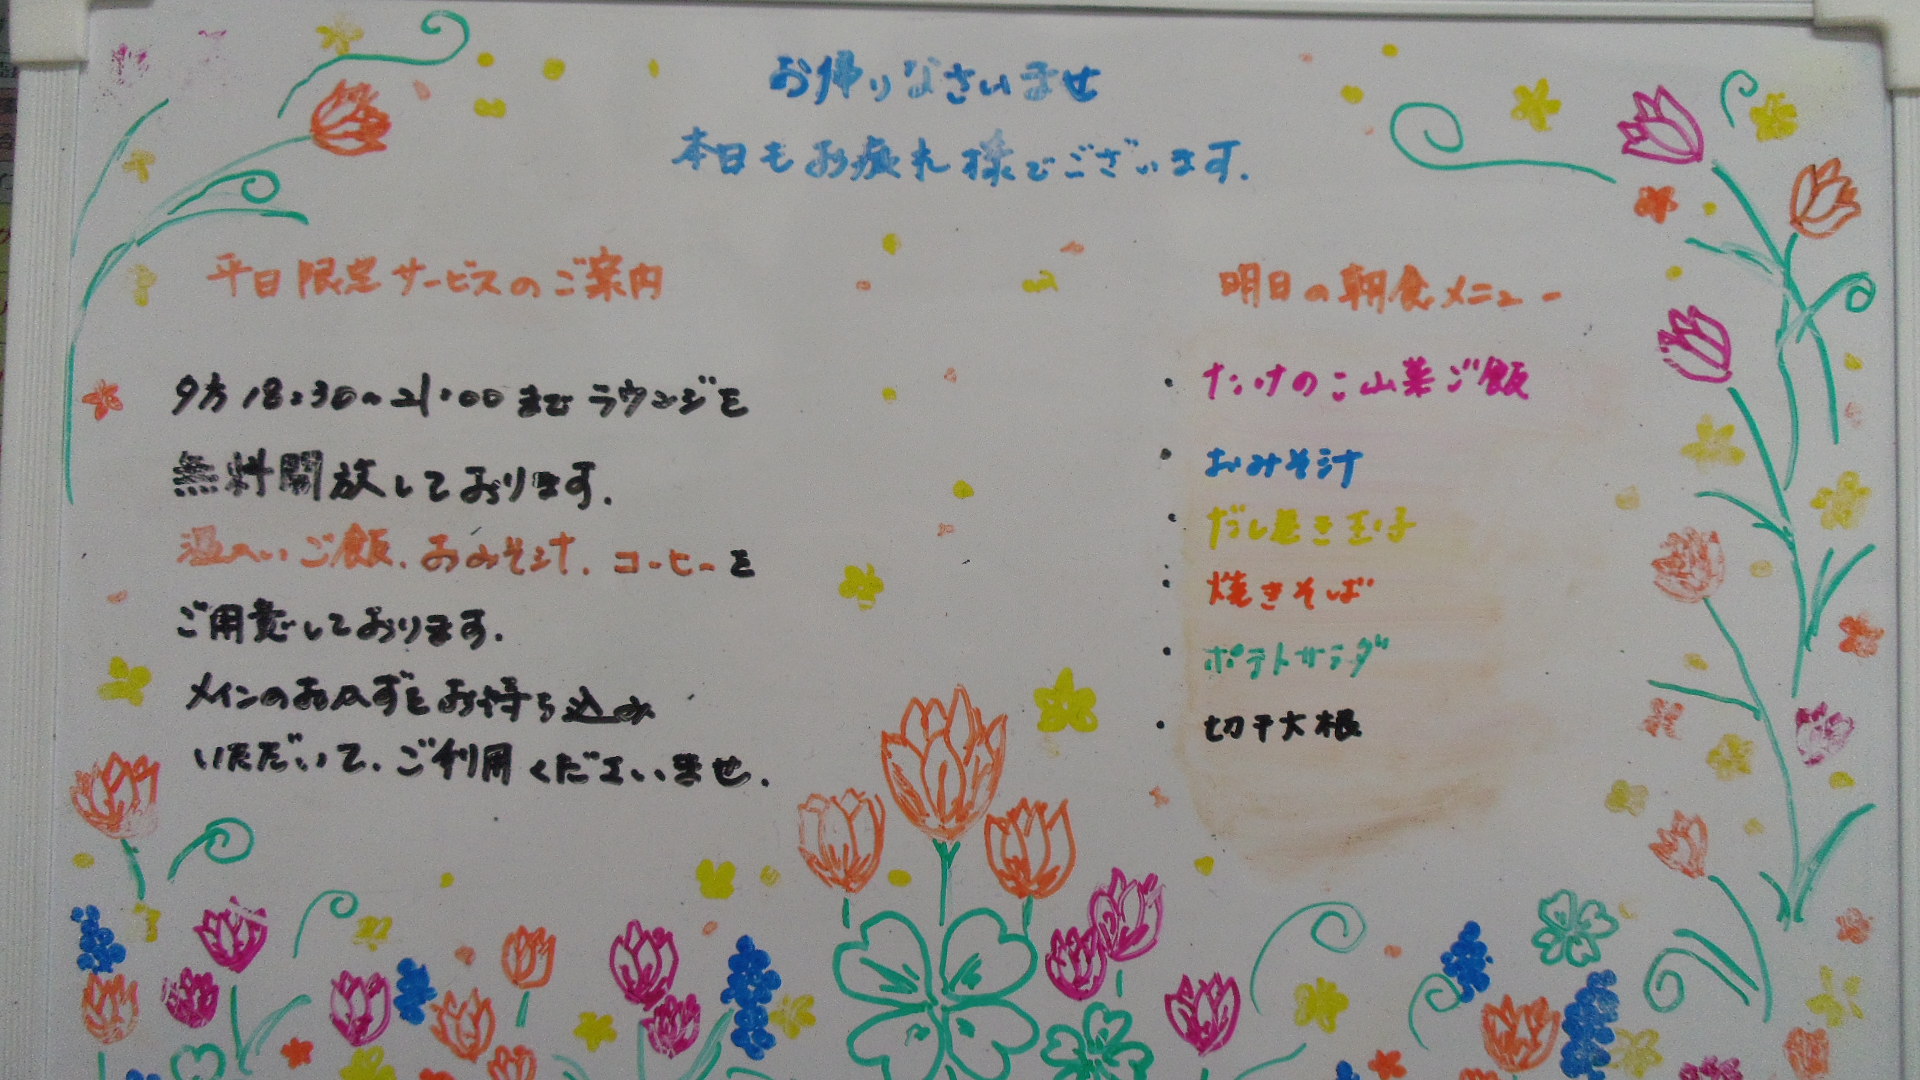 お帰りなさいませ
本日もお疲れ様でございます.
平日限定サービスのご案内
夕方 18:30~21:00までラウンジを
無料開放しております.
温かいご飯.おみそ汁.コーヒーを
ご用意しております.
メインのおかずをお持ち込み
いただいて.ご利用くださいませ.
明日の朝食メニュー
・たけのこ山菜ご飯
・おみそ汁
・だし巻き玉子
・焼きそば
・ポテトサラダ
・切干大根